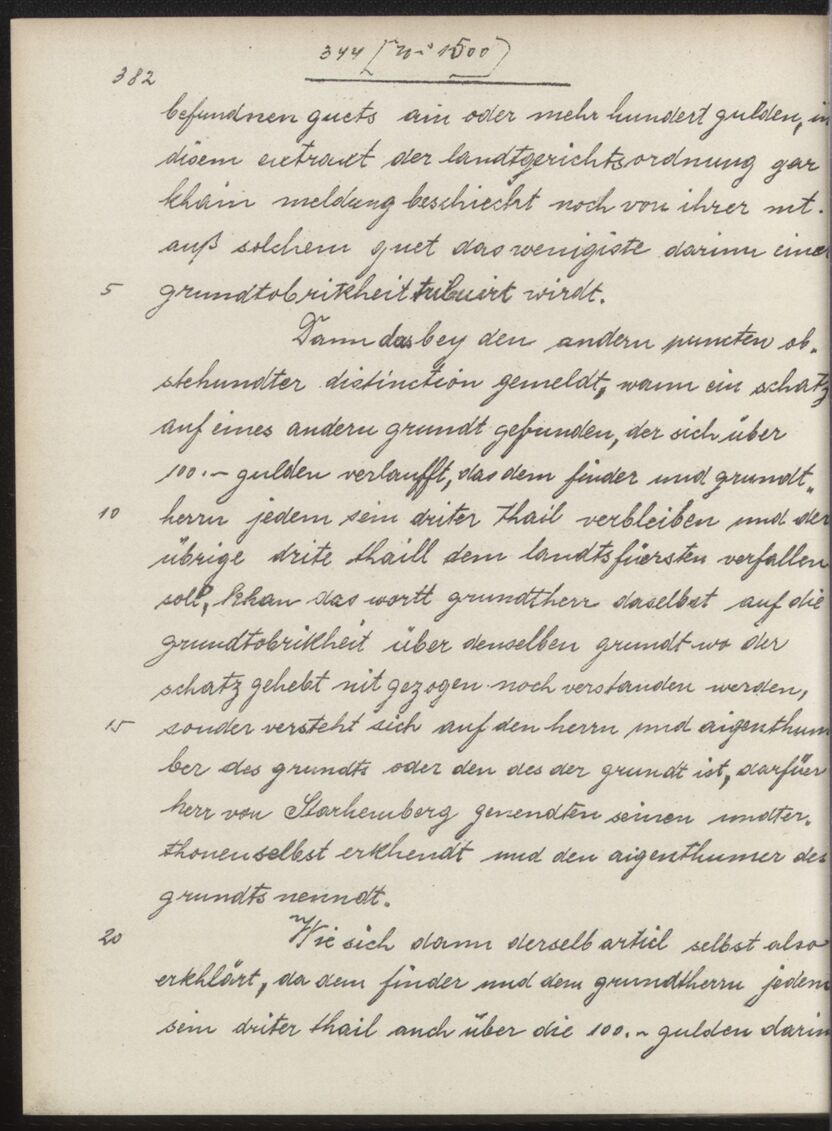 344 [N° 1500]
382
befundnen guets ain oder mehr hundert gulden, in
disem extraxt der landtgerichtsordnung gar
khain meldung beschiecht noch von ihrer mt.
auß solchem guet das wenigiste darinn einer
5 grundtobrikheit tribuirt wirdt.
Dann das bey den andern puncten ob-
stehundter distinction gemeldt, wann ein schatz
auf eines andern grundt gefunden, der sich über
100.- gulden verlaufft, das dem finder und grundt-
10 herrn jedem sein driter thail verbleiben und der
übrige drite thaill dem landtsfüersten verfallen
soll, khan das wortt grundtherr daselbst auf die
grundtobrikheit über denselben grundt wo der
schatz gehebt nit gezogen noch verstanden werden,
15 sonder versteht sich auf den herrn und aigenthum
ber des grundts oder den des der grundt ist, darfüer
herr von Starhemberg genendten seinen undter-
thonen selbst erkhendt und den aigenthumer des
grundts nenndt.
20 Wie sich dann derselb articl selbst also
erkhlärt, da dem finder und dem grundtherrn jedem
sein driter thail auch über die 100.- gulden darin